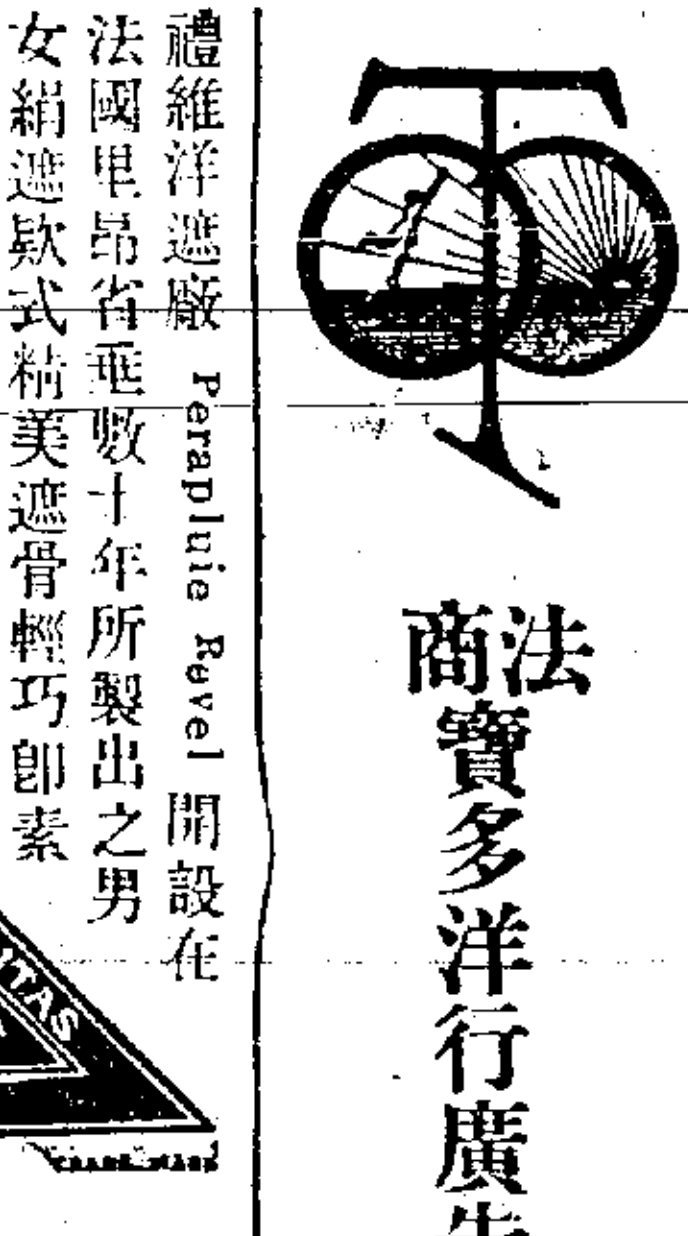 法商寶多洋行廣告
禮維洋遮廠 Perapluie Revel 開設在
法國里昂省垂數十年所製出之男
女絹遮欵式精美遮骨輕巧卽素
TAS
TRADE MARK